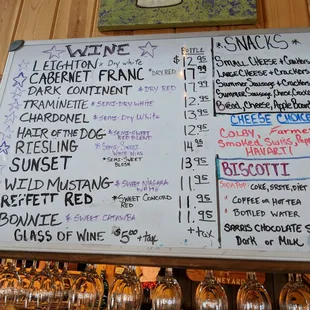 WINE
BOTTLE
LEIGHTON * Dry White $12.95
CABERNET FRANC * DRY RED $17.99
DARK CONTINENT * DRY RED
TRAMINETTE * SEMI-DRY WHITE
CHARDONEL * SEMI-DRY WHITE
HAIR OF THE DOG * SEMI-SWEET RED BLEND
RIESLING * SEMI-SWEET WHITE WINE
SUNSET * SEMI-SWEET BLUSH
WILD MUSTANG * SWEET NIAGARA 11.95
REFFETT RED * SWEET CONCORD RED 11.95
BONNIE * SWEET CATAWBA 11.95
GLASS OF WINE $5.00 + tax
+ tax
*SNACKS*
SMALL CHEESE + CRACKERS
LARGE CHEESE + CRACKERS
SUMMER SAUSAGE + CRACKERS
SUMMER SAUSAGE, CHEESE
BREAD, CHEESE, APPLE
CHEESE CHOICE
COLBY, FARMER
SMOKED SWISS,
HAVARTI
BISCOTTI
COKE, SPRITE, DIET
* COFFEE OR HOT TEA
* BOTTLED WATER
SARRIS CHOCOLATE
DARK OR MILK